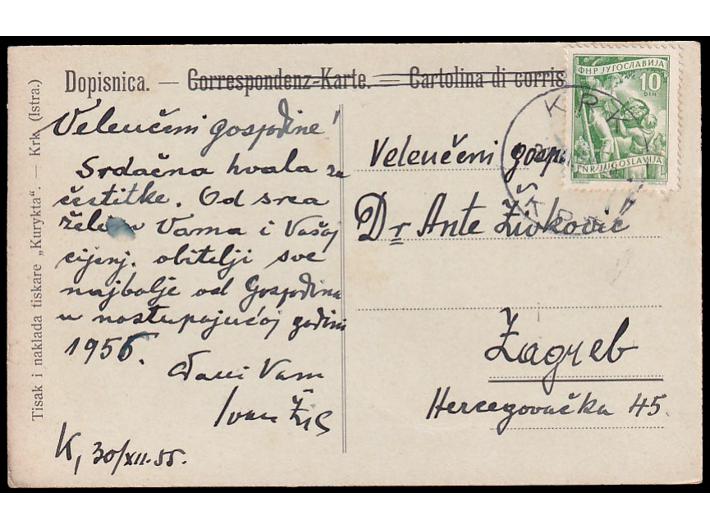 Dopisnica. — Correspondenz-Karte. — Cartolina di corris
ФНР ЈУГОСЛАВИЈА
10
DIN
FNR JUGOSLAVIJA
KRK
KRK
Tisak i naklada tiskare „Kurykta“. — Krk (Istra.)
Veleučeni gospodine!
Srdačna hvala za
čestitke. Od srca
želim Vama i Vašoj
cijenj. obitelji sve
najbolje od Gospodina
u nastupajućoj godini
1956.
Vam
Ivan Žic
K, 30/XII. 55.
Veleučeni
Dr Ante Živković
Zagreb
Hercegovačka 45.